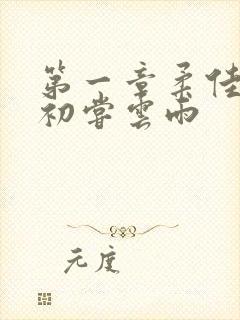 第一章柔佳
初嘗雲雨
元度